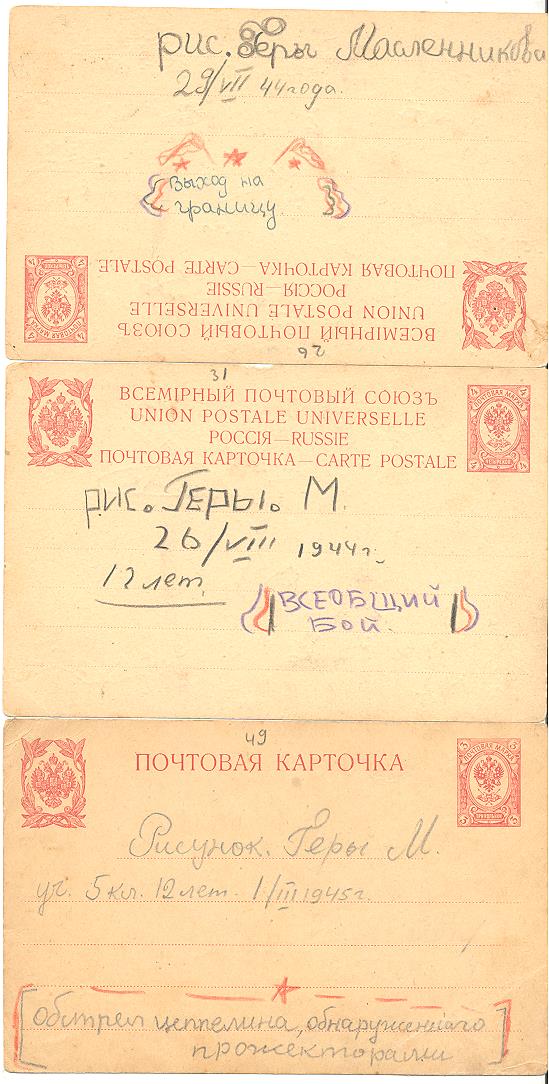 рис. Геры Масленникова
29/VII 44 года.
Выход на
границу
ВСЕМIРНЫЙ ПОЧТОВЫЙ СОЮЗЪ
UNION POSTALE UNIVERSELLE
РОССIЯ—RUSSIE
ПОЧТОВАЯ КАРТОЧКА—CARTE POSTALE
4 ПОЧТОВАЯ МАРКА 4
26
31
ВСЕМIРНЫЙ ПОЧТОВЫЙ СОЮЗЪ
UNION POSTALE UNIVERSELLE
РОССIЯ—RUSSIE
ПОЧТОВАЯ КАРТОЧКА—CARTE POSTALE
4 ПОЧТОВАЯ МАРКА 4
4 4
рис. Геры. М.
26/VIII 1944 г.
12 лет.
ВСЕОБЩИЙ
БОЙ.
49
ПОЧТОВАЯ КАРТОЧКА
3 ПОЧТОВАЯ МАРКА 3
3 3
Рисунок. Геры М.
уч. 5 кл. 12 лет. 1/III 1945 г.
Обстрел цеппелина, обнаруженного
прожекторами